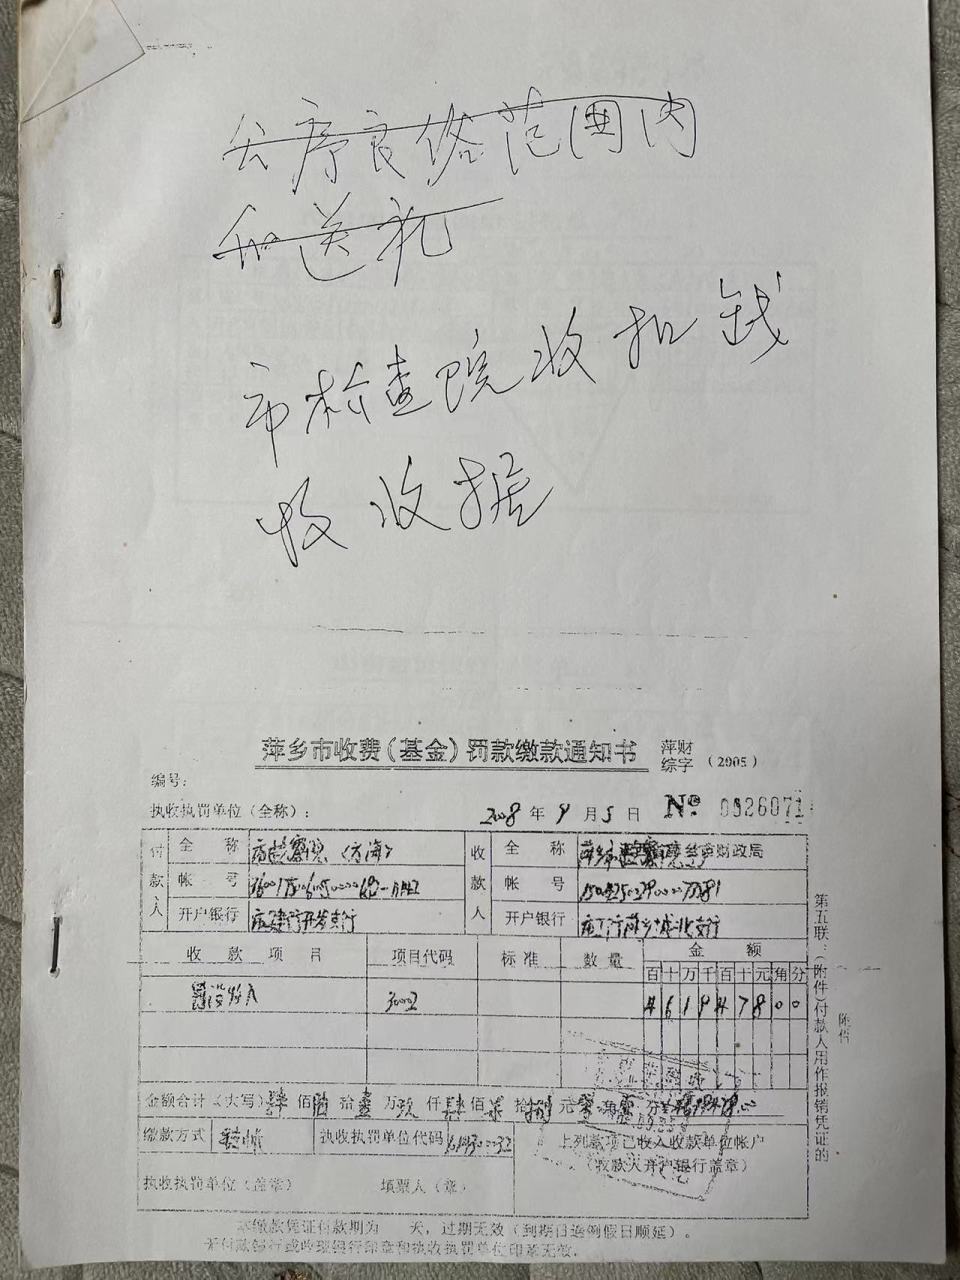 公序良俗范围内
和送礼
市检查院收扣钱
收收据
萍乡市收费（基金）罚款缴款通知书
萍财
综字 （2005）
编号：
执收执罚单位（全称）： 2008 年 9 月 5 日 № 0326071
付款人 全 称 收款人 全 称 财政局
帐 号 帐 号
开户银行 市建行开发支行 开户银行 市工行萍乡城北支行
收 款 项 目 项目代码 标 准 数 量 金 额
百 十 万 千 百 十 元 角 分
罚没收入 4 6 1 9 4 7 8 0 0
金额合计（大写） 肆 佰 陆 拾 壹 万 玖 仟 肆 佰 柒 拾 捌 元 零 角 零 分
缴款方式 转帐 执收执罚单位代码
上列款项已收入收款单位帐户
（收款人开户银行盖章）
执收执罚单位（盖章） 填票人（章）
本缴款凭证付款期为 天，过期无效（到期日遇例假日顺延）。
无付款银行或收理银行印章和执收执罚单位印章无效.
第五联：（附件）付款人用作报销凭证的
附件